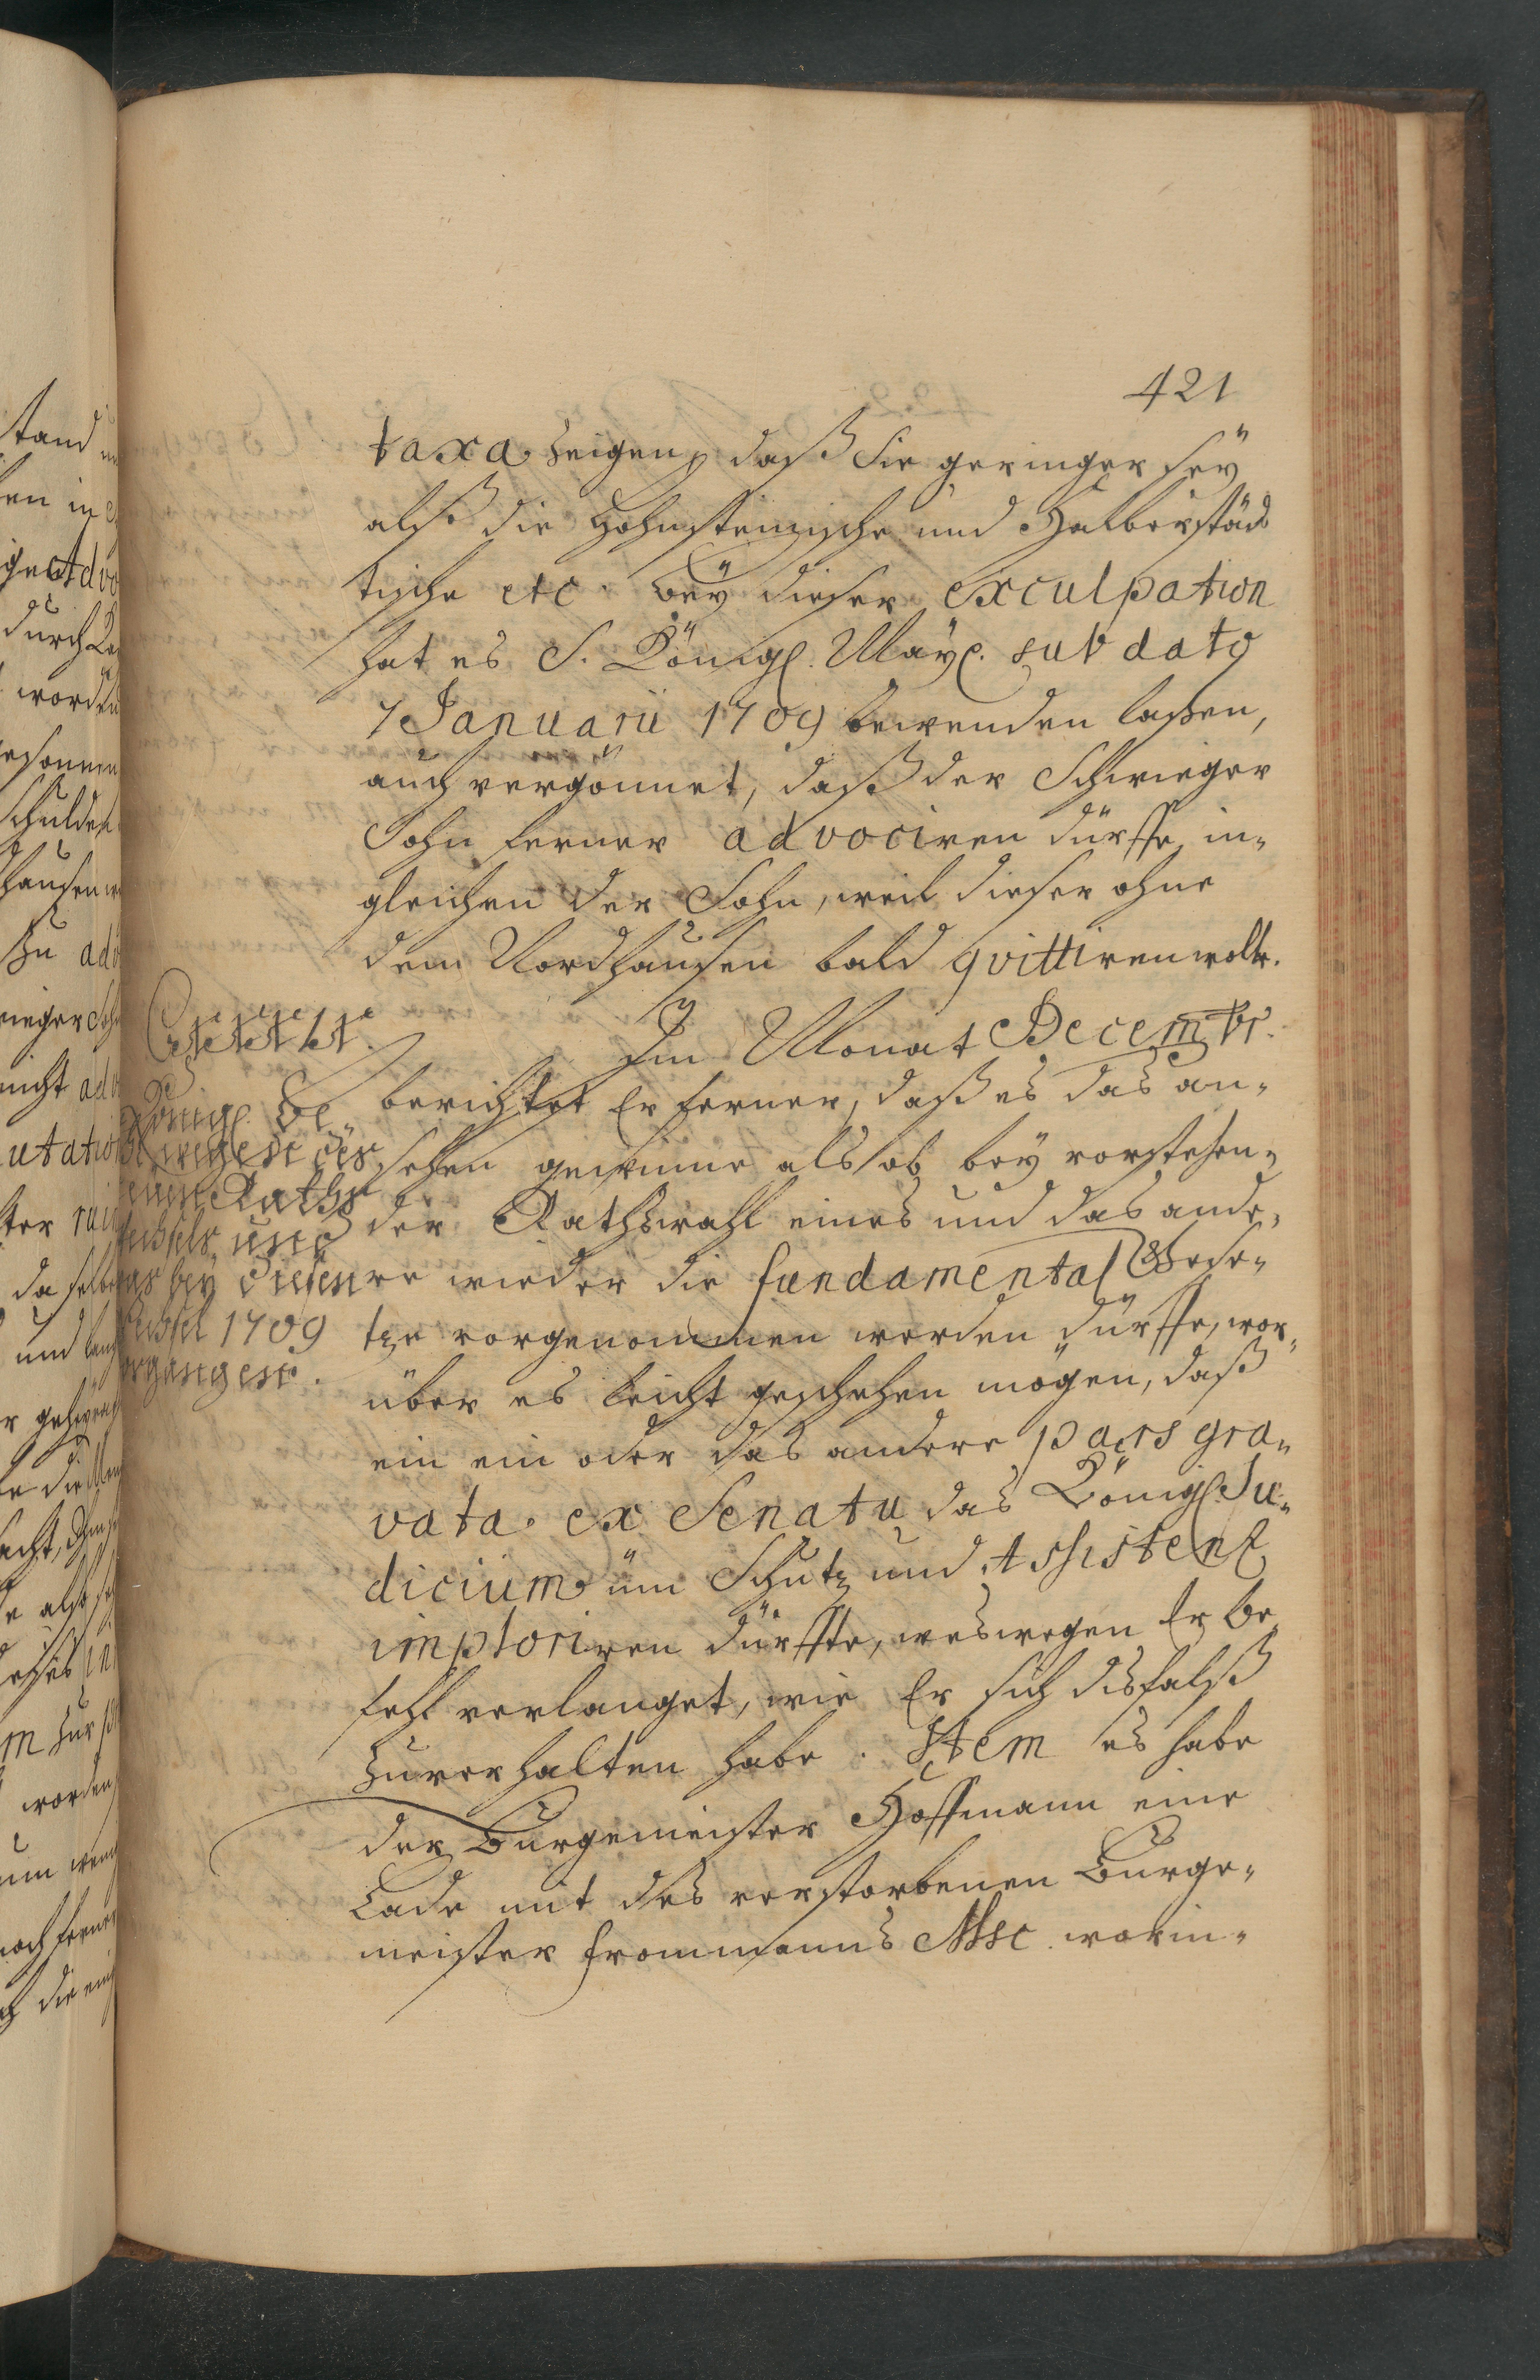 421
taxa zeigen, daß Sie geringer seÿ
alß die Hohnsteinische und Halberstäd
tische etc. beÿ dieser exculpation
hat es S. Königl. Maÿt. sub dato
7 Januarii 1709 bewenden laßen,
auch vergönnet, daß der Schwieger
Sohn ferner advociren dürffe in-
gleichen der Sohn, weil dieser ohne
dem Nordhausen bald qvittiren wolte.
Im Monat Decembr.
berichtet Er ferner, daß es das an-
sehen gewinne als ob beÿ vorstehen-
der Rathswahl eines und das ande-
re wieder die fundamental Gese-
tze vorgenommen werden dürffe, wor-
über es leicht geschehen mögen, daß
ein ein oder das andere pars gra-
vata ex Senatu das Königl. Ju-
dicium üm Schutz und Assistenz
imploriren dürffte, weswegen Er be
fehl verlanget, wie Er sich disfalß
zuverhalten habe. Item es habe
der Burgemeister Hoffmann eine
Lade mit des verstorbenen Burge-
meister Frommanns Msc. worin-
Königl. Be
wegen des
Raths
und
beÿ diesen
1709